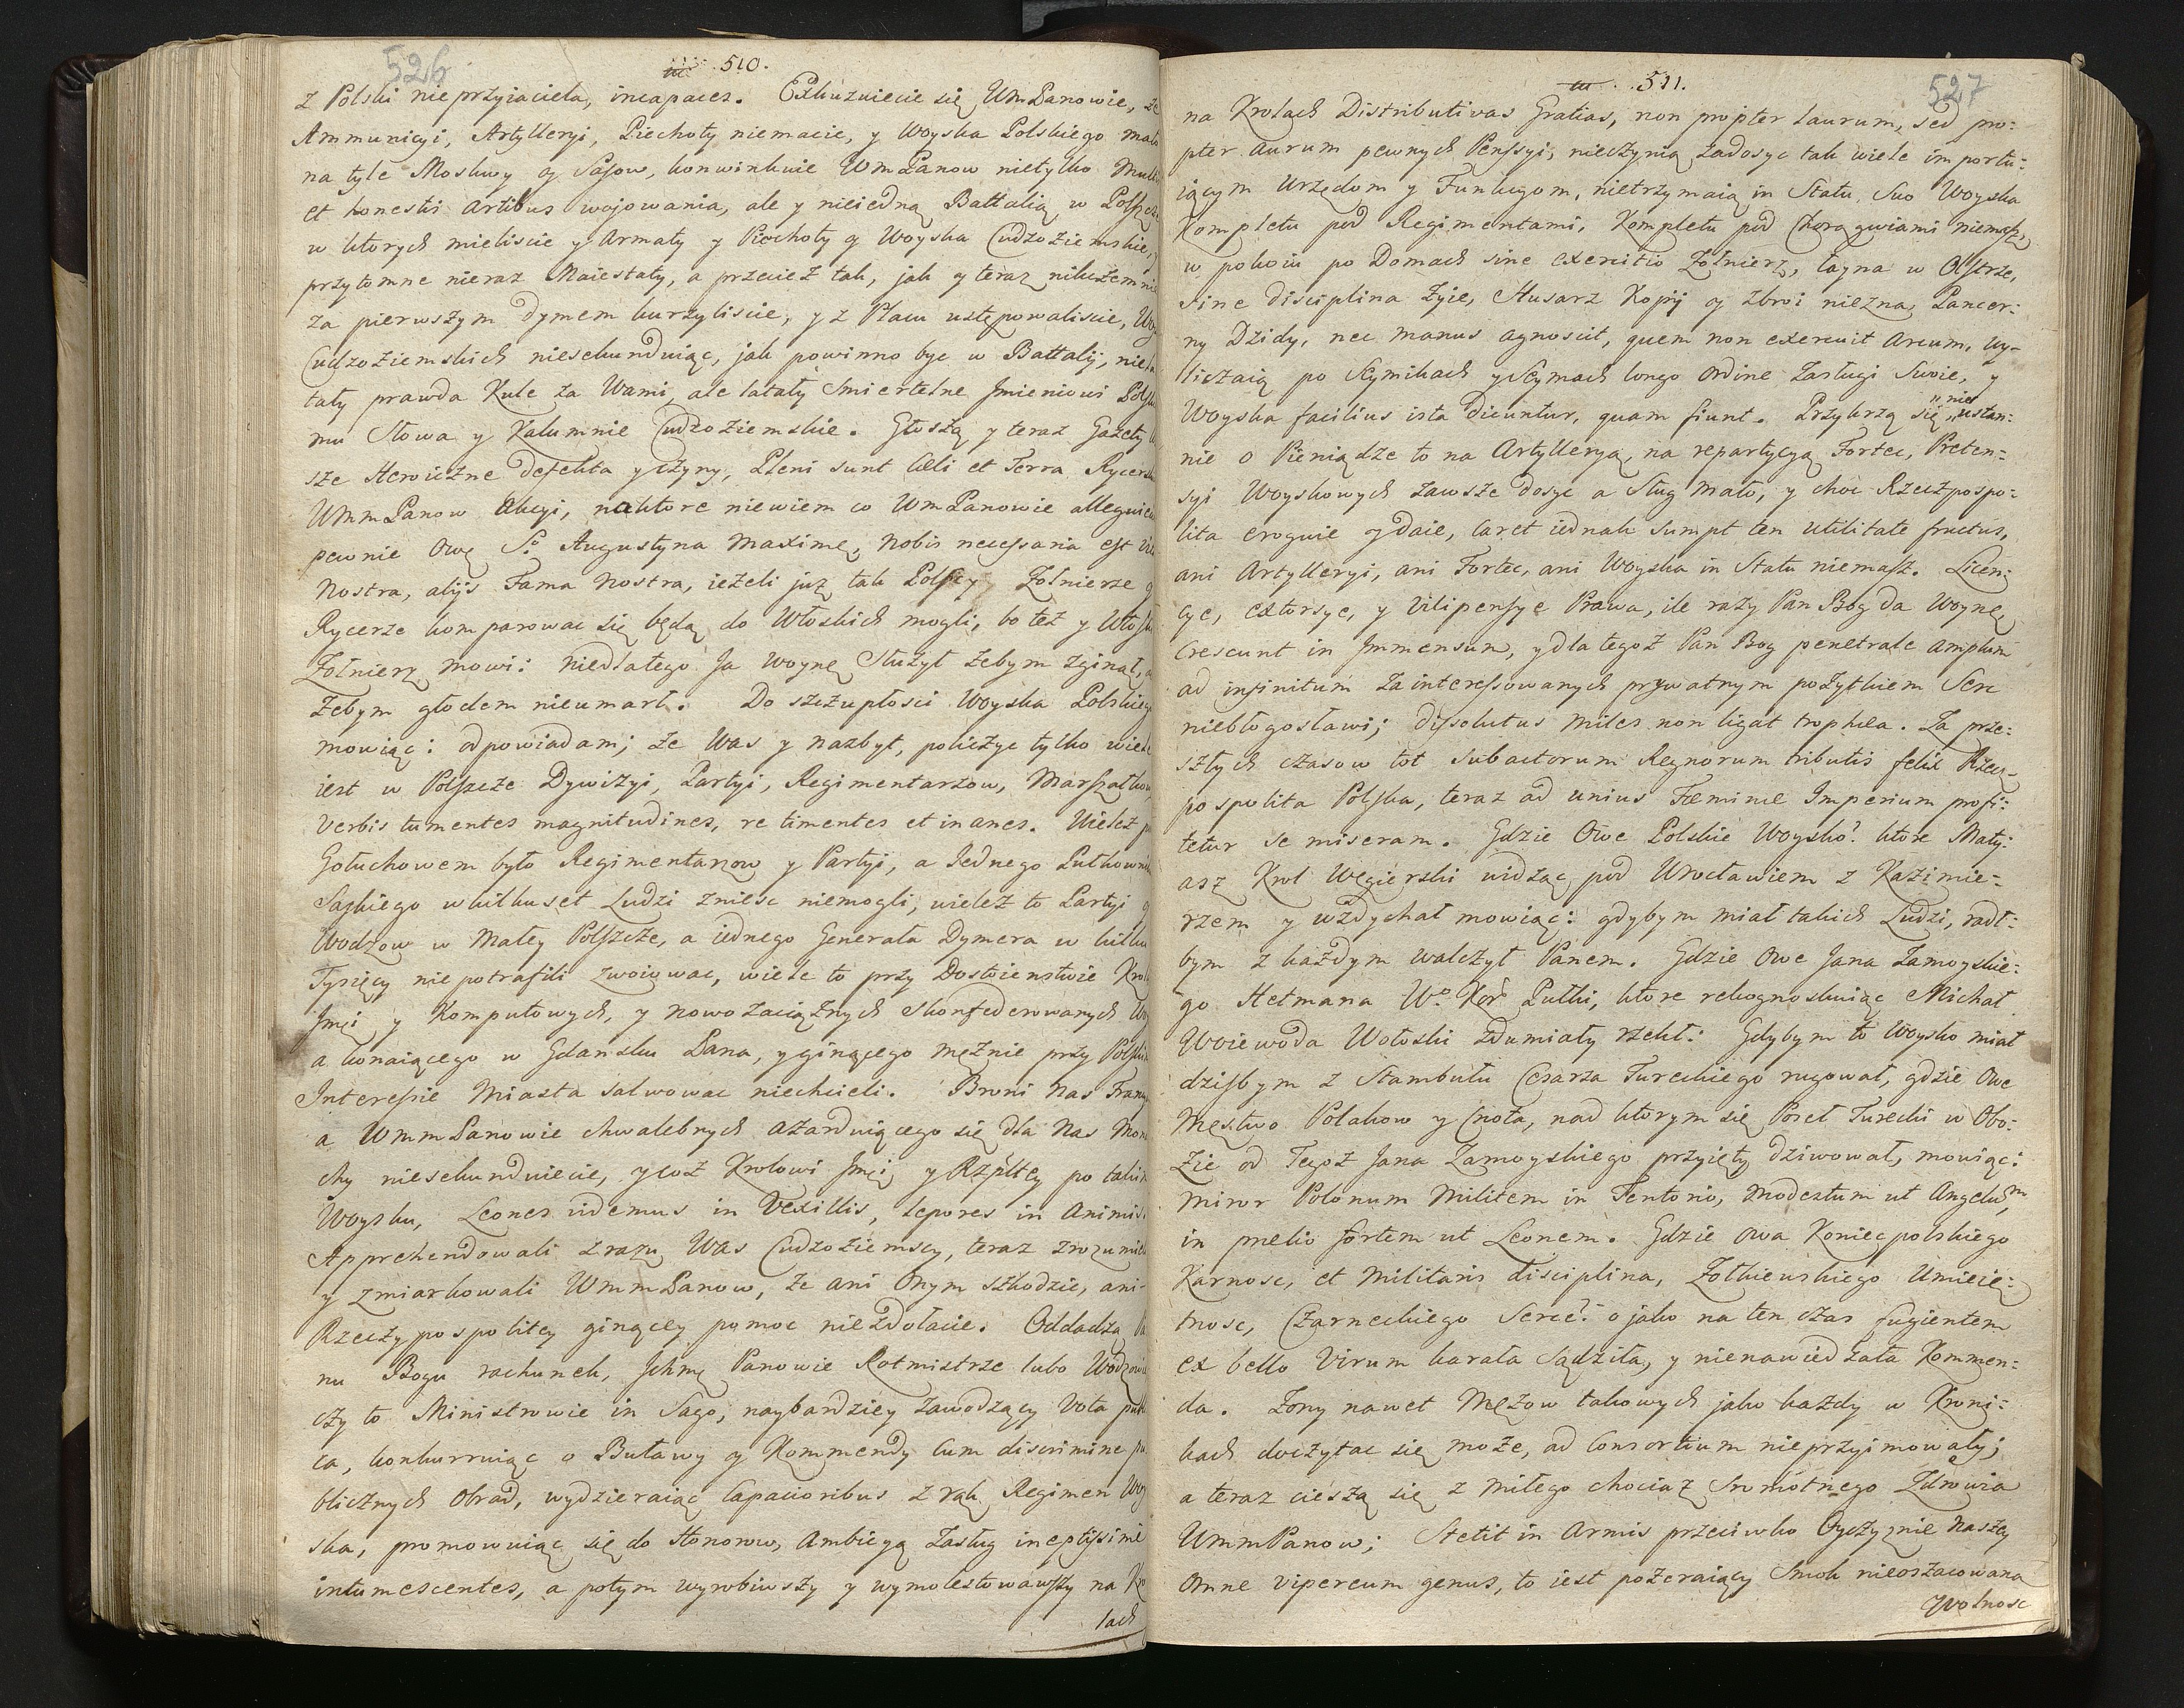 526
510.
z Polski nieprzyiaciela, incapaces. Exkuzuiecie się WmPanowie, że
Ammunicyi, Artylleryi, Piechoty niemacie, y Woyska Polskiego mało
na tyle Moskwy y Sasow, konwinkuie WmPanow nietylko
et honestis artibus wojowania, ale y nieiedną Battalią w
w ktorych mieliscie y Armaty y Piechoty y Woyska Cudzoziemskie,
przytomne nieraz Maiestaty, a przecież tak, jak y teraz nikczemnie
za pierwszym dymem kurzyliscie, y z Placu ustępowaliscie,
Cudzoziemskich niesekunduiąc, jak powinno byc w Battalij,
tały prawda Kule za Wami, ale latały Smiertelne Jmieniowi
mu Słowa y Kalumnie Cudzoziemskie. Głoszą y teraz Gazety
sze Heroiczne defekta y czyny, Pleni sunt Cœli et Terra
UmmPanow Akcyi, naktore niewiem co WmPanowie alleguiecie
pewnie Owę So Augustyna Maximę, Nobis necessaria est
Nostra, alijs Fama Nostra, ieżeli już tak Polscy Zołnierze y
Rycerze komparowac się będą do Włoskich mogli, bo też y
Zołnierz mowi: niedlatego Ja Woynę Służył żebym zginął,
Żebym głodem nieumarł. Do szczupłosci Woyska Polskiego
mowiąc: odpowiadam; że Was y nazbyt, policzyc tylko wiele
iest w Polszcze Dywizyi, Partyi, Regimentarzow, Marszałkow,
Verbis tumentes magnitudines, re timentes et inanes. Wieleż
Gołuchowem było Regimentarzow y Partyi, a Jednego Pułkownika
Saskiego w kilkuset Ludzi zniesc niemogli, wieleż to Partyi y
Wodzow w Małey Polszcze, a iednego Generała Dymera w kilku
Tysięcy niepotrafili zwoiowac, wiele to przy Dostoienstwie
Jmci y Komputowych, y nowozaciążnych Skonfederowanych
a konaiącego w Gdansku Pana, y ginącego mężnie przy
Interessie Miasta salwowac niechcieli. Broni Nas
a WmmPanowie chwalebnych azarduiącego się dla Nas
chy niesekunduiecie, y coż Krolowi Jmci y Rzpltey po takim
Woysku, Leones videmus in Vexillis, lepores in Animis.
Apprehendowali zrazu Was Cudzoziemscy, teraz zrozumieli
y zmiarkowali WmmPanow, że ani Onym szkodzic, ani-
Rzeczypospolitey ginącey pomoc niezdołacie. Oddadzą
nu Bogu rachunek, Jchmc Panowie Rotmistrze lubo Wodzowie
czy to Ministrowie in Sago, naybardziey zawodzący Vota
ca, konkurruiąc o Buławy y Kommendy Cum discrimine
blicznych Obrad, wydzieraiąc Capacioribus z rąk Regimen
ska, promowuiąc się do Honorow, Ambicyą Zasług ineptissime
intumescentes, a potym wyrobiwszy y wymolestowawszy na
lach
527
511.
na Krolach Distributivas Gratias, non propter Laurum, sed pro:
pter Aurum pewnych Pensyi, nieczynią zadosyc tak wiele importu:
iącym Urzędom y Funkcyom, nietrzymaią in Statu Suo Woyska
Kompletu pod Regimentami, Kompletu pod Chorągwiami niemasz,
w pokoiu po Domach sine exercitio Zołnierz, łayna w Olstrze,
sine disciplina żyie, Husarz Kopij y zbroi niezna, Pancer:
ny Dzidy, nec manus agnoscit, quem non exercuit Arcum, wy-
liczaią po Seymikach y Seymach longo Ordine Zasługi Swoie, y
Woyska facilius ista dicuntur, quam fiunt. Przykrzą się nieustan:
nie o Pieniądze to na Artylleryą, na repartycyą Fortec, Preten:
syi Woyskowych zawsze dosyc a Sług mało, y choc Rzeczpospo:
lita eroguie y daie, Caret iednak Sumpt ten Utilitate fructus,
ani Artylleryi, ani Fortec, ani Woyska in Statu niemasz. Licen:
cye, extorsye, y Vilipensye Prawa, ile razy Pan Bog da Woynę
Crescunt in Jmmensum, y dla tegoż Pan Bog penetrale amplum
ad infinitum zainteressowanych prywatnym pożytkiem Serc
niebłogosławi; dissolutus miles non ligat trophæa. Za prze:
szłych czasow tot Subactorum Regnorum tributis felix Rzecz-
pospolita Polska, teraz ad unius Fæminæ Imperium profi:
tetur se miseram. Gdzie Owe Polskie Woysko? ktore Maty:
asz Krol Węgierski widząc pod Wrocławiem z Kazimie:
rzem y wzdychał mowiąc: gdybym miał takich Ludzi, rad:
bym z każdym walczył Panem. Gdzie Owe Jana Zamoyskie:
go Hetmana Wo Kor Pułki, ktore rekognoskuiąc Michał
Woiewoda Wołoski zdumiały rzekł: Gdybym to Woysko miał
dzisbym z Stambułu Cesarza Tureckiego rugował, gdzie Owe
Męstwo Polakow y Cnota, nad ktorym się Poseł Turecki w Obo:
zie od Tegoż Jana Zamoyskiego przyięty dziwował, mowiąc:
Miror Polonum Militem in Tentorio, Modestum ut Angelum,
in prælio fortem ut Leonem. Gdzie Owa Koniecpolskiego
Karnosc, et Militaris disciplina, Zołkiewskiego Umieię:
tnosc, Czarneckiego Serce? o jako na ten czas fugientem
ex bello Virum karała sądziła, y nienawiedzała Kommen:
da. Zony nawet Mężow takowych jako każdy w Kroni:
kach doczytac się może, ad Consortium nieprzyimowały;
a teraz cieszą się z miłego chociaż Sromotnego Zdrowia
UmmPanow; Stetit in Armis przeciwko Oyczyznie Naszey
Omne vipereum genus, to iest pożeraiący Smok nieoszacowaną
Wolnosc